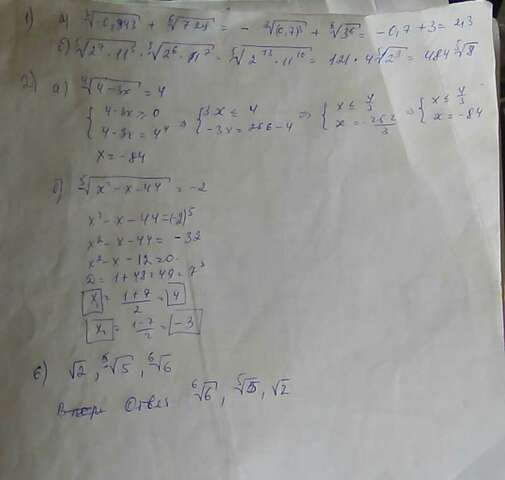 1) а) ³√-0,343 + ⁶√729 = -³√(0,7)³ + ⁶√3⁶ = -0,7 + 3 = 2,3
б) ⁵√2⁷·11³ · ⁵√2⁶·11⁷ = ⁵√2¹³·11¹⁰ = 121·4 ⁵√2³ = 484 ⁵√8
2) а) ⁴√4-3x = 4
{ 4-3x ≥ 0 ⇒ { 3x ≤ 4 ⇒ { x ≤ 4/3 ⇒ { x ≤ 4/3
{ 4-3x = 4⁴ { -3x = 256-4 { x = -252/3 { x = -84
x = -84
б) ⁵√x²-x-44 = -2
x²-x-44 = (-2)⁵
x²-x-44 = -32
x²-x-12 = 0
D = 1+48=49=7²
x₁ = 1+7/2 = 4
x₂ = 1-7/2 = -3
в) √2, ⁵√5, ⁶√6
Ответ ⁶√6, ⁵√5, √2